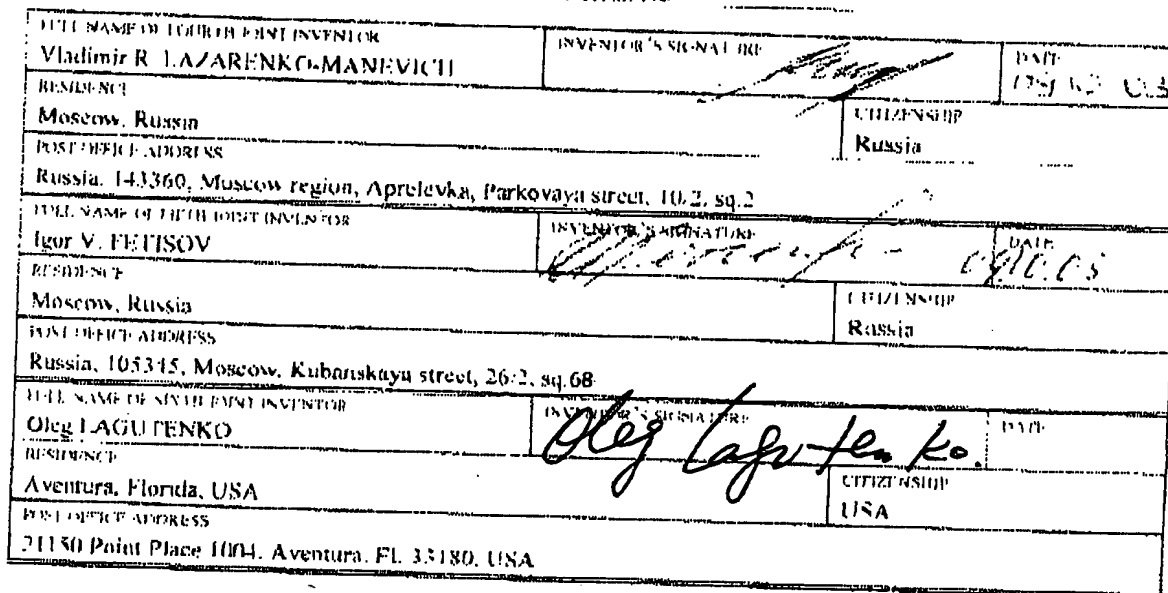 FULL NAME OF FOURTH JOINT INVENTOR
Vladimir R. LAZARENKO-MANEVICH
INVENTOR'S SIGNATURE
DATE
RESIDENCE
Moscow, Russia
CITIZENSHIP
Russia
POST OFFICE ADDRESS
Russia, 143360, Moscow region, Aprelevka, Parkovaya street, 10/2, sq.2
FULL NAME OF FIFTH JOINT INVENTOR
Igor V. FETISOV
INVENTOR'S SIGNATURE
DATE
RESIDENCE
Moscow, Russia
CITIZENSHIP
Russia
POST OFFICE ADDRESS
Russia, 105345, Moscow, Kubanskaya street, 26/2, sq.68
FULL NAME OF SIXTH JOINT INVENTOR
Oleg LAGUTENKO
INVENTOR'S SIGNATURE
Oleg Lagutenko.
DATE
RESIDENCE
Aventura, Florida, USA
CITIZENSHIP
USA
POST OFFICE ADDRESS
21150 Point Place 1004, Aventura, FL 33180, USA